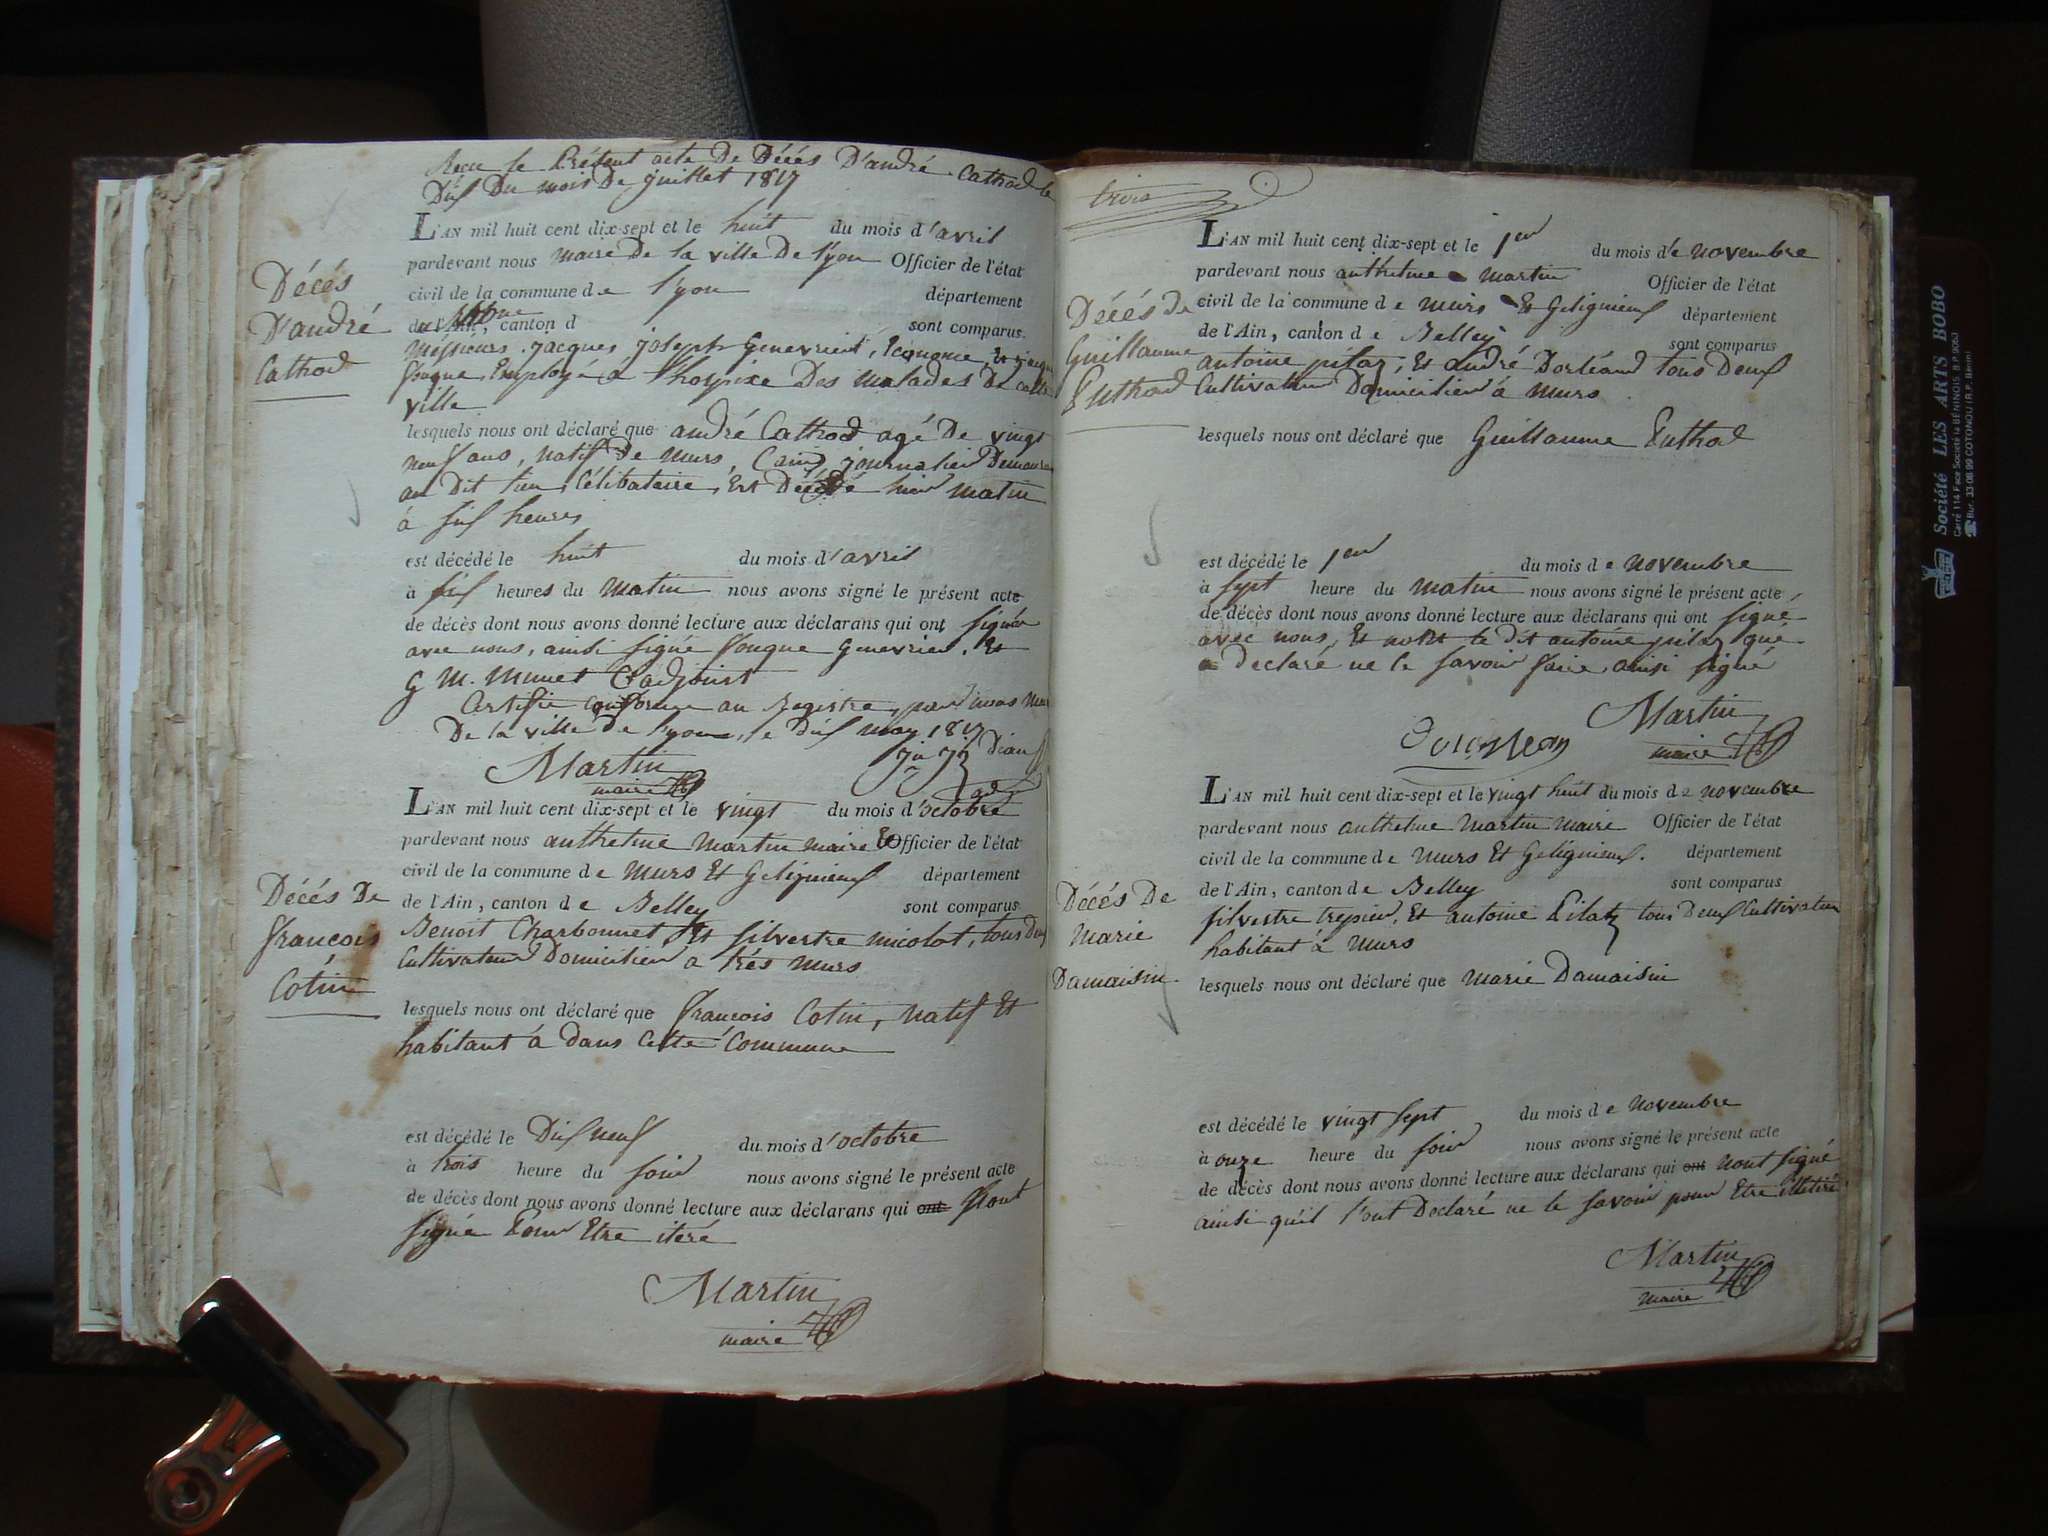 Reçu le Présent acte De Décés D'andré Cathod le
Dix Du mois De juillet 1817
L'AN mil huit cent dix-sept et le huit du mois d'avril
pardevant nous maire De la ville De lyon Officier de l'état
civil de la commune de lyon département
du Rhône
de l'Ain, canton d sont comparus
Messieurs jacques joseph Genevrient, Econome, Et
fouque Employé à l'hospice Des malades De cette
ville
Décés
D'andré
Cathod
lesquels nous ont déclaré que andré Cathod agé De vingt
neuf ans, natif De murs, journalier Demeurant
au Dit lieu, Célibataire, Est Décédé hier matin
à six heures
est décédé le huit du mois d'avril
à six heures du matin nous avons signé le présent acte
de décès dont nous avons donné lecture aux déclarans qui ont signés
avec nous, ainsi signé fouque Genevrier, Et
G M. Mimet adjoint
Certifié conforme au Registre, par nous Maire
De la ville de lyon, le Dix may 1817
Martin
maire
L'AN mil huit cent dix-sept et le vingt du mois d'octobre
pardevant nous anthelme Martin maire Et Officier de l'état
civil de la commune de Murs Et Gelignieux département
de l'Ain, canton de Belley sont comparus
Benoit Charbonnet, Et silvestre micolot, tous Deux
Cultivateur Domicilier a trés Murs
Décés De
francois
Cotin
lesquels nous ont déclaré que francois Cotin, Natif Et
habitant à dans Cette Commune
est décédé le Dix neuf du mois d'octobre
à trois heure du soir nous avons signé le présent acte
de décès dont nous avons donné lecture aux déclarans qui ont n'ont
signé Pour Etre iteré
Martin
maire
trois
L'AN mil huit cent dix-sept et le 1er du mois de novembre
pardevant nous anthelme martin Officier de l'état
civil de la commune de murs Et Gelignieux département
de l'Ain, canton de Belley sont comparus
antoine pilaz, Et andré Dorléand tous Deux
Cultivateur Domicilier à murs
Décés de
Guillaume
Puthod
lesquels nous ont déclaré que Guillaume Puthod
est décédé le 1er du mois de novembre
à sept heure du matin nous avons signé le présent acte
de décès dont nous avons donné lecture aux déclarans qui ont signé
avec nous, Et non le dit antoine pilaz qui
a Declaré ne le savoir faire ainsi signé
Martin
maire
L'AN mil huit cent dix-sept et le vingt huit du mois de novembre
pardevant nous anthelme Martin maire Officier de l'état
civil de la commune de Murs Et Gelignieux. département
de l'Ain, canton de Belley sont comparus
silvestre trepier, Et antoine Pilatz tous Deux Cultivateur
habitant à Murs
Décés De
Marie
Damaisin
lesquels nous ont déclaré que Marie Damaisin
est décédé le vingt sept du mois de Novembre
à onze heure du soir nous avons signé le présent acte
de décès dont nous avons donné lecture aux déclarans qui ont n'ont signé
ainsi qu'il l'ont Declaré ne le savoir pour Etre illetiré
Martin
maire
Société LES ARTS BOBO